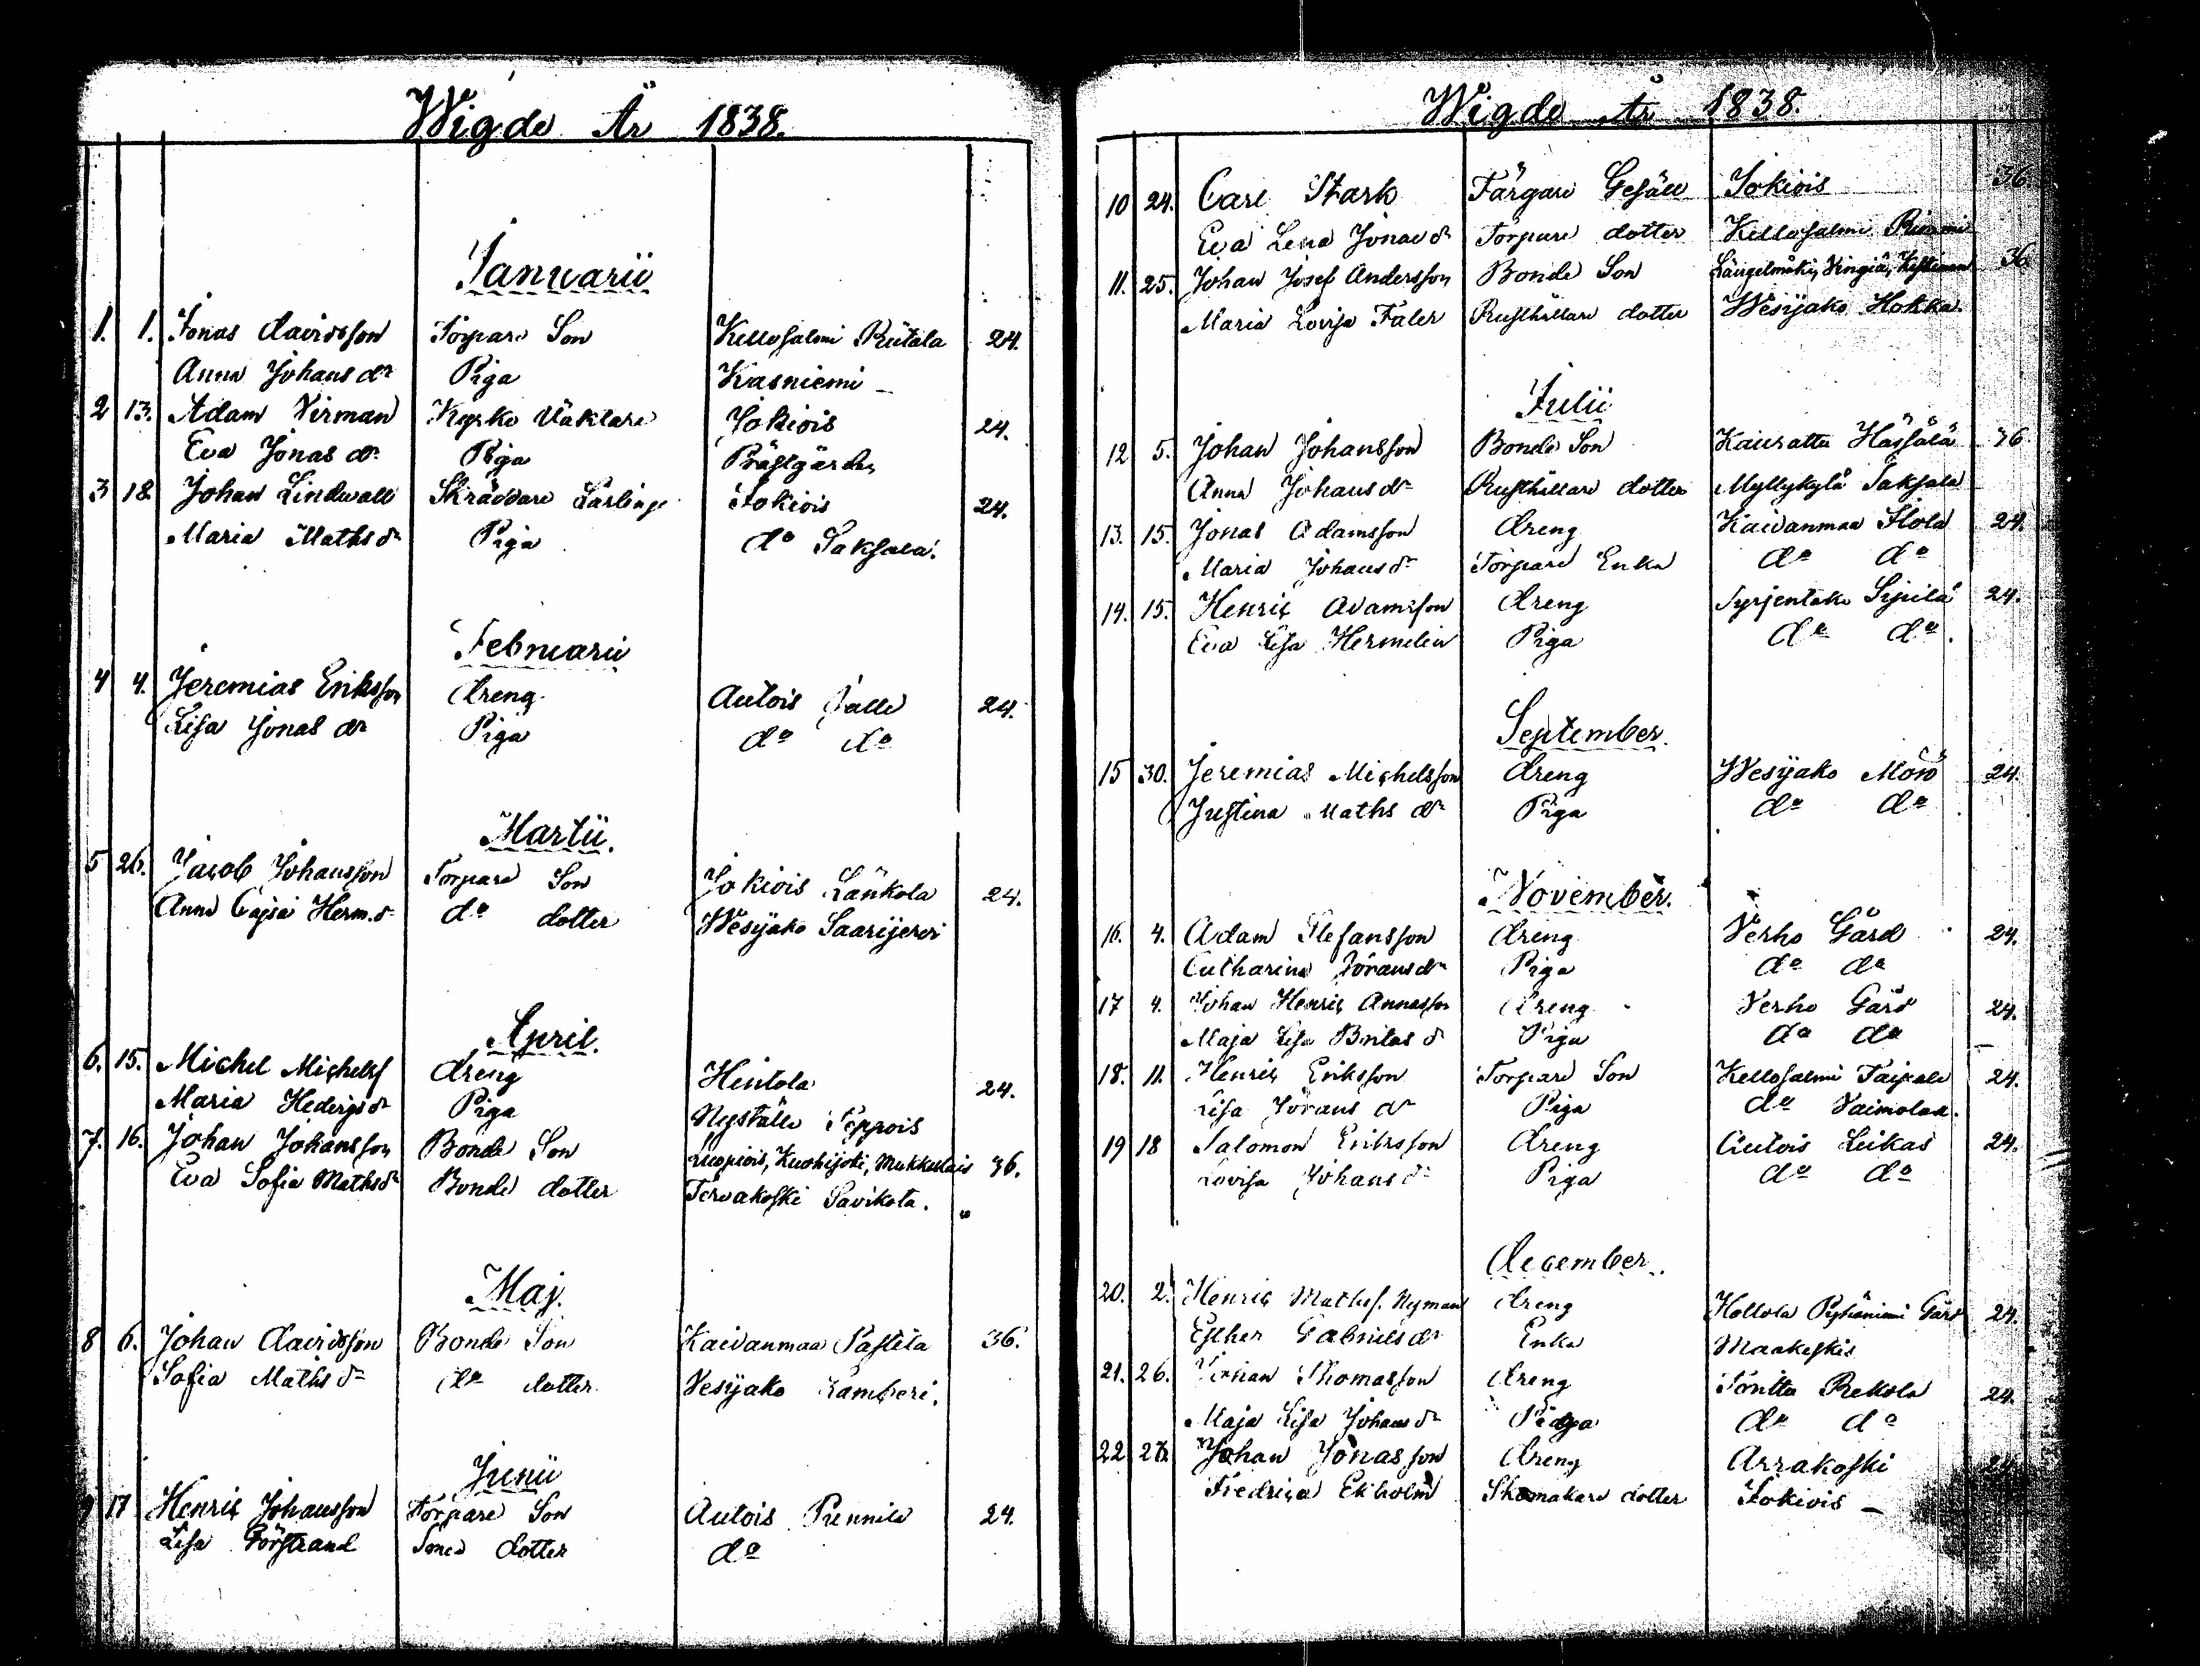 Wigde År 1838.
Januarii
1. 1. Jonas Davidsson Torpare Son Kellosalmi Rutala 24.
Anna Johans dr Piga Kasniemi
2 13. Adam Virman Kyrko Väktare Jokiois 24.
Eva Jonas dr Piga Prästgården
3 18 Johan Lindwall Skräddare Lärling Jokiois 24.
Maria Maths dr Piga do Saksala.
Februarii
4 4. Jeremias Eriksson Dreng Autois Jalle 24.
Lisa Jonas dr Piga do do
Martii.
5 26. Jacob Johansson Torpare Son Jokiois Länkola 24.
Anna Cajsa Herm. dr do dotter Wesijako Saarijervi
April.
6. 15. Michel Michelss Dreng Hintola 24.
Maria Hedersdr Piga Nystälu Seppois
7. 16. Johan Johansson Bonde Son Luopiois, Kuohijoki, Mukkulais 36.
Eva Sofia Mathsdr Bonde dotter Tervakoski Savikota.
Maj.
8 6. Johan Davidsson Bonde Son Kaivanmaa Pastila 36.
Sofia Maths dr do dotter Vesijako Lamberi.
Junii
9 17 Henric Johansson Torpare Son Autois Pennila 24.
Lisa Förstrand dotter do
Wigde År 1838.
10 24. Carl Stark Färgare Gesäll Jokiois 36.
Eva Lena Jonas dr Torpare dotter Kellosalmi
11. 25. Johan Josef Andersson Bonde Son Längelmäki, 36
Maria Lovisa Faler Rusthållare dotter Wesijako Hokka.
Julii
12 5. Johan Johansson Bonde Son Kauratta Hässälä 36
Anna Johans dr Rusthållare dotter Myllykylä Saksala
13. 15. Jonas Adamsson Dreng Kaivanmaa Ilola 24.
Maria Johans dr Torpare Enka do do
14. 15. Henric Adamsson Dreng Syrjentaka Sipilä 24.
Eva Lisa Hermelin Piga do do.
September.
15 30. Jeremias Michelsson Dreng Wesijako Mörö 24.
Justina Maths dr Piga do do
November.
16. 4. Adam Stefansson Dreng Verho Gård 24.
Catharina Jörans dr Piga do do
17 4. Johan Henric Annasson Dreng Verho Gård 24.
Maja Lisa Britas dr Piga do do
18. 11. Henric Eriksson Torpare Son Kellosalmi Taipale 24.
Lisa Jörans dr Piga do Vaimolaa.
19 18 Salomon Eriksson Dreng Autois Leikas 24.
Lovisa Johans dr Piga do do
December.
20. 2. Henric Mathss. Nyman Dreng Hollola Pyhäniemi Gård 24.
Esther Gabriels dr Enka Maakeskis
21. 26. Johan Thomasson Dreng Torittu Rekola 24.
Maja Lisa Johans dr Piga do do
22 26 Johan Jonasson Dreng Arrakoski 24
Fredrica Ekholm Skomakare dotter Jokiois